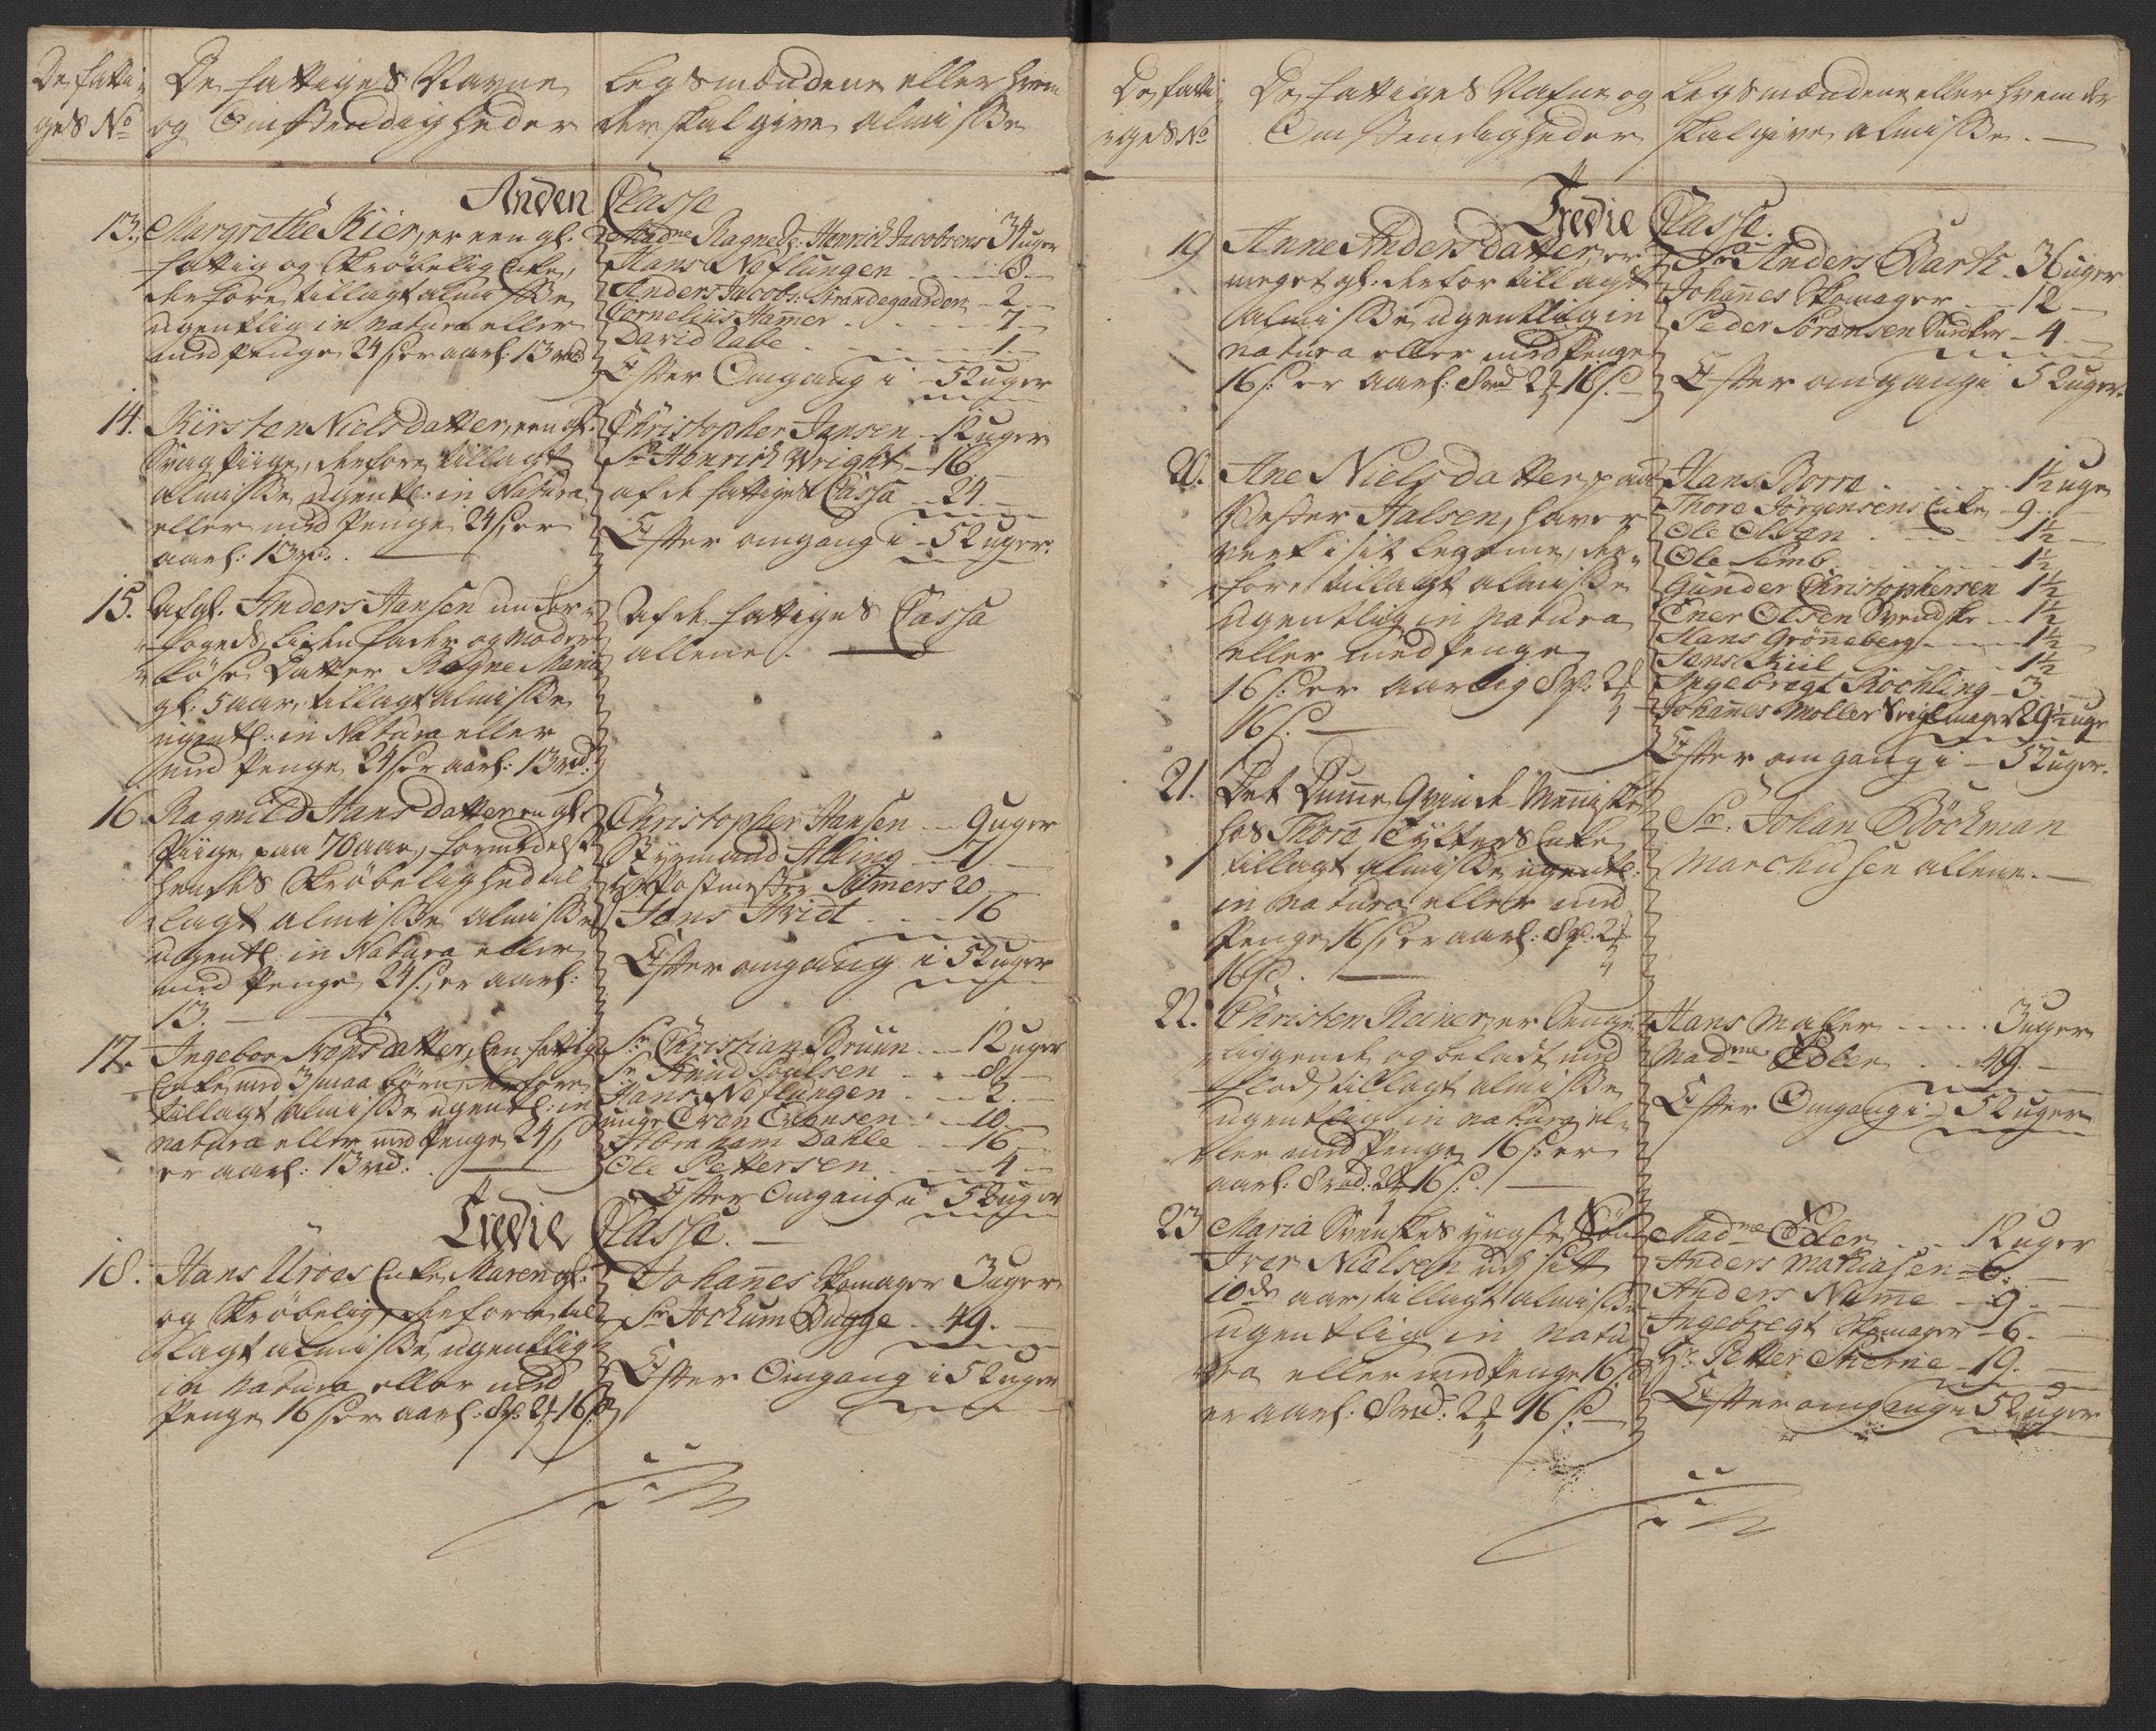 De fatti-
ges No
De fattiges Navne
og Omstendigheder
Legsmændene eller hvem
der skal give almisse
Anden Classe
13. Margrethe Kier, er een gl.
fattig og Skröbelig Enke,
derfore tillagt almisse
ugentlig in natura eller
med Penge 24 s er aarl: 13 rd
Madme Ragned Sr. Henrich Jacobsens 34 uger
Hans Neflungen 8
Anders Jacobs: Strandegaarden 2
Cornelius Hamer 7
David Rabe 1
Efter Omgang i 52 uger
14. Kirsten Nielsdatter, een gl.
Svag Piige, derfore tillagt
almisse ugentl: in Natura
eller med Penge 24 s, er
aarl: 13 rd.
Christopher Jansen 12 uger
Sr Henrich Wright 16
af de fattiges Cassa 24
Efter omgang i 52 uger.
15. Afgl. Anders Hansen under-
fogeds liden fader og Moder
löse Datter Ragne Maria
gl: 5 aar, tillagt almisse
ugentl: in Natura eller
med Penge 24 s er aarl: 13 rd:
Af de fattiges Cassa
allene.
16. Ragnild Hansdatter en gl.
Piige paa 70 aar, formedelst
hendes Skröbelighed til
lagt almisse almisse
ugentl: in Natura eller
med Penge 24 s. er aarl:
13.
Christopher Hansen 9 uger
Styrmand Alling 7
Hr Postmester Sümers 20
Jens Hvidt 16
Efter omgang i 52 uger
17. Ingebor Svensdatter, Een fattig
Enke med 3 smaa börn, derfore
tillagt almisse ugentl: in
natura eller med Penge 24 s
er aarl: 13 rd:
Sr Christian Bruun 12 uger
Sr Knud Poulsen 8
Hans Neflungen 2
unge Even Evensen 10
Abraham Dahle 16
Ole Pettersen 4
Efter Omgang i 52 uger
Tredie Classe.
18. Hans Uroes Enke Maren gl:
og Skröbelig, derfore til
lagt almisse ugentlig
in natura eller med
Penge 16 s er aarl: 8 rd 2 16 s
Johannes Skomager 3 uger
Sr Jochum Bugge 49.
Efter Omgang i 52 uger
De fatti
ges No
De fattiges Nafne og
Omstendigheder
Legsmændene eller hvem der
skal give almisse.
Tredie Classe.
19 Anne Andersdatter, er
meget gl: derfor tillagt
almisse ugentlig in
natura eller med Penge
16 s: er aarl: 8 rd 2 16 s.
Sr Anders Bartt 36 uger
Johannes Skomager 12
Peder Sörensen 4
Efter omgang i 52 uger.
20. Ane Nielsdatter paa
Vester Halsen, haver
verk i sit legeme, der-
fore tillagt almisse
ugentlig in natura
eller med Penge
16 s: er aarlig 8 rd: 2
16 s.
Hans Borre 1½ uge
Thore Jörgensens Enke 9
Ole Olsan 1½
Ole Semb 1½
Gunder Christophersen 1½
Ener Olsen Svendske 1½
Hans Grönneberg 1½
Jens Kiil 1½
Ingebregt Rochling 3
Johannes Moller Seiglmager 29½ uge
Efter omgang i 52 uger.
21. Det Dumme Qvinde Menniske
hos Thore Tÿfters Enke
tillagt almisse ugentl:
in natura eller med
Penge 16 s, er aarl: 8 rd: 2
16 s.
Sr: Johan Böchman
Marchusen allene.
22. Christen Reiner, er Senge
liggende og beladt med
flod, tillagt almisse
ugentlig in natura el-
ler med Penge 16 s: er
aarl: 8 rd: 2 16 s:
Hans Maler 3 uger
Madme Edler 49.
Efter Omgang i 52 uger
23 Maria Svenskes yngste Sön
Iver Nielsen udi sitt
10de aar, tillagt almisse
ugentlig in natu
ra eller med Penge 16 s
er aarl: 8 rd: 2 16 s
Madme Edler 12 uger
Anders Mathiasen 6.
Anders Numme 9
Ingebregt Skomager 6.
Hr. Petter Stierne 19.
Efter omgang i 52 uger